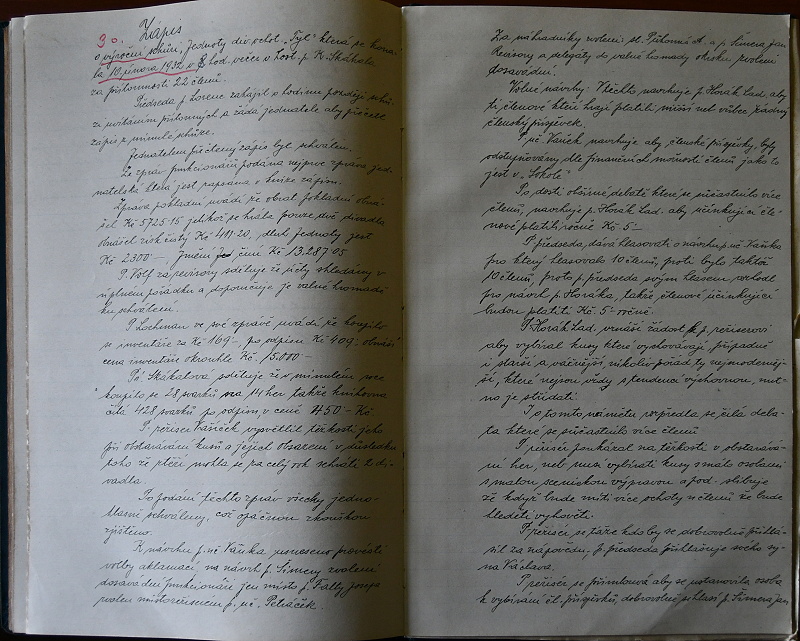 30.
Zápis
o výroční schůzi, jednoty div. ochot. "Tyl" která se kona-
la 10. února 1932 v 8 hod. večer v host. p. K. Skákala
za přítomnosti 22 členů.
Předseda p. Lorenc zahájil o hodinu později schů-
zi uvítáním přítomných a žádá jednatele aby přečetl
zápis z minulé schůze.
Jednatelem přečtený zápis byl schválen.
Ze zpráv funkcionářů podána nejprve zpráva jed-
natelská která jest zapsána v knize zápisů.
Zpráva pokladní uvádí že obrat pokladní obná-
šel Kč 5725.15 jelikož se hrála pouze dvě divadla
obnášel zisk čistý Kč 411.20, dluh jednoty jest
Kč 2300- jmění činí Kč 13.287.05
P. Volf za revisory sděluje že účty shledány v
úplném pořádku a doporučuje je valné hromadě
ku schválení.
P. Lochman ve své zprávě uvádí že koupilo
se inventáře za Kč 169-, po odpisu Kč 409- obnáší
cena inventáře okrouhle Kč 15.000-
Pí. Skákalová sděluje že v minulém roce
koupilo se 28 svazků na 14 her takže knihovna
čítá 428 svazků po odpisu v ceně 1450- Kč.
P. režisér Vaníček vysvětlil těžkosti jeho
při obstarávání kusů a jejich obsazení v důsledku
toho že ptěži mohla se za celý rok sehráti 2 di-
vadla.
Po podání těchto zpráv všecky jedno-
hlasně schváleny, což opáčnou zkouškou
zjištěno.
K návrhu p. uč. Vaňka usneseno provésti
volby aklamací, na návrh p. Šimery zvoleni
dosavadní funkcionáři jen místo p. Josefa
zvolen místorežisérem p. uč. Petráček.
Za náhradníky zvoleni: sl. Příhonná A. a p. Šimera Jan
Revisory a delegáty do valné hromady okrsku zvoleni
dosavadní.
Volné návrhy: V těchto navrhuje p. Horák Lad. aby
ti, členové kteří hrají platili nižší neb vůbec žádný
členský příspěvek.
P. uč. Vaněk navrhuje aby, členské příspěvky, byly
odstupňovány dle finančních možností členů jako to
jest v "Sokole"
Po, dosti obšírné debatě které se súčastnilo více
členů, navrhuje p. Horák Lad. aby účinkující čle-
nové platili ročně Kč 5-
P. předseda, dává hlasovati o návrhu p. uč. Vaňka
pro který hlasovalo 10 členů, proti bylo taktéž
10 členů, proto p. předseda svým hlasem rozhodl
pro návrh p. Horáka, takže, členové účinkující
budou platiti Kč 5- ročně.
P. Horák Lad. vznáší žádost k p. režiserovi
aby vybíral kusy které vychovávají, případně
i starší a vážnější, nikoliv pořád ty nejmoderněj-
ší, které nejsou vždy s tendencí výchovnou, nut-
no je střídati.
I o tomto námětu rozpředla se čilá deba-
ta které se súčastnilo více členů.
P. režisér poukázal na těžkosti v obstarává-
ní her, neb musí vybírati kusy s málo osobami
s malou scenickou výpravou a pod. - slibuje
že když bude míti více ochoty u členů že bude
hleděti vyhověti.
P. režisér se táže kdo by se dobrovolně přihlá-
sil za nápovědu, p. předseda přihlašuje svého sy-
na Václava.
P. režisér se přimlouvá aby se ustanovila osoba
k vybírání čl. příspěvků, dobrovolně se hlásí p. Šimera Jan